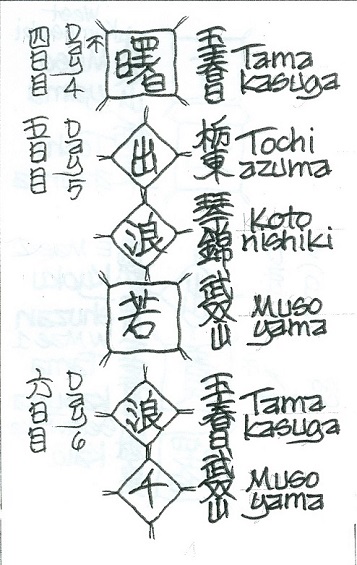 四日目 Day 4 不
曙
玉春日 Tama
kasuga
五日目 Day 5
出
栃東 Tochi
azuma
浪
琴錦 Koto
nishiki
若
武双山 Muso
yama
六日目 Day 6
浪
玉春日 Tama
kasuga
千
武双山 Muso
yama